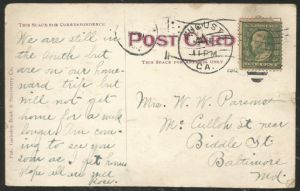 THIS SPACE FOR CORRESPONDENCE
We are still in
the South but
are on our home-
ward trip but
will not get
home for a week
longer. I'm com-
ing to see you
soon as I get home
Hope all are well
POST CARD
THIS SPACE FOR ADDRESS ONLY
AUGUST
11 PM
GA.
Mrs. W. W. Parsons
McCulloh St near
Biddle St
Baltimore
Md.